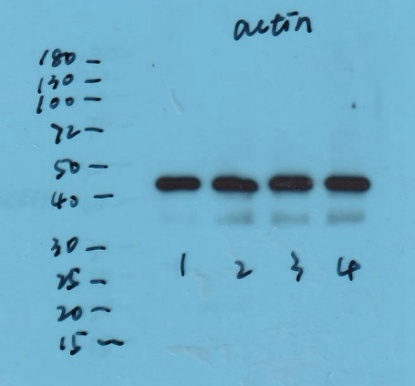 actin
180 -
130 -
100 -
72 -
50 -
40 -
30 -
25 -
20 -
15 -
1 2 3 4